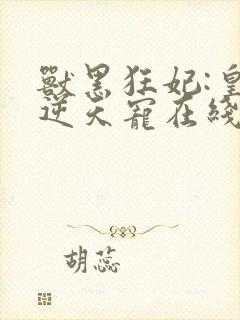 獸黑狂妃:皇
逆天寵在綫
胡蕊